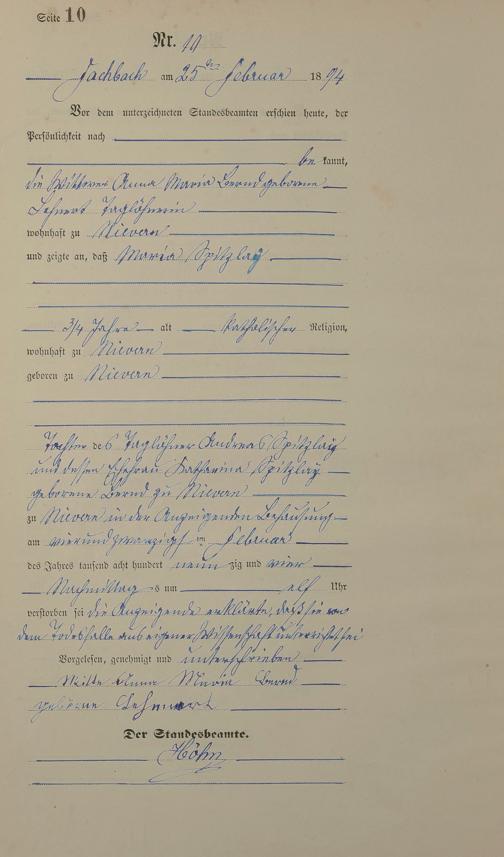 Seite 10
Nr. 10
Fachbach am 25ten Februar 1894
Vor dem unterzeichneten Standesbeamten erschien heute, der
Persönlichkeit nach
be kannt,
die Wittwe Anna Maria Bernd geborene
Lehnert Taglöhnerin
wohnhaft zu Nievern
und zeigte an, daß Maria Spitzlay
3/4 Jahre alt Katholischer Religion,
wohnhaft zu Nievern
geboren zu Nievern
Tochter des Taglöhner Andreas Spitzlay
und dessen Ehefrau Katharina Spitzlay
geborene Bernd zu Nievern
zu Nievern in der Anzeigenden Behausung
am vierundzwanzigst en Februar
des Jahres tausend acht hundert neun zig und vier
Nachmittag s um elf Uhr
verstorben sei die Anzeigende erklärte, daß sie von
dem Todesfalle aus eigener Wissenschaft unterrichtet sei
Vorgelesen, genehmigt und unterschrieben
Anna Maria Bernd
geborne Lehnert
Der Standesbeamte.
Höhn